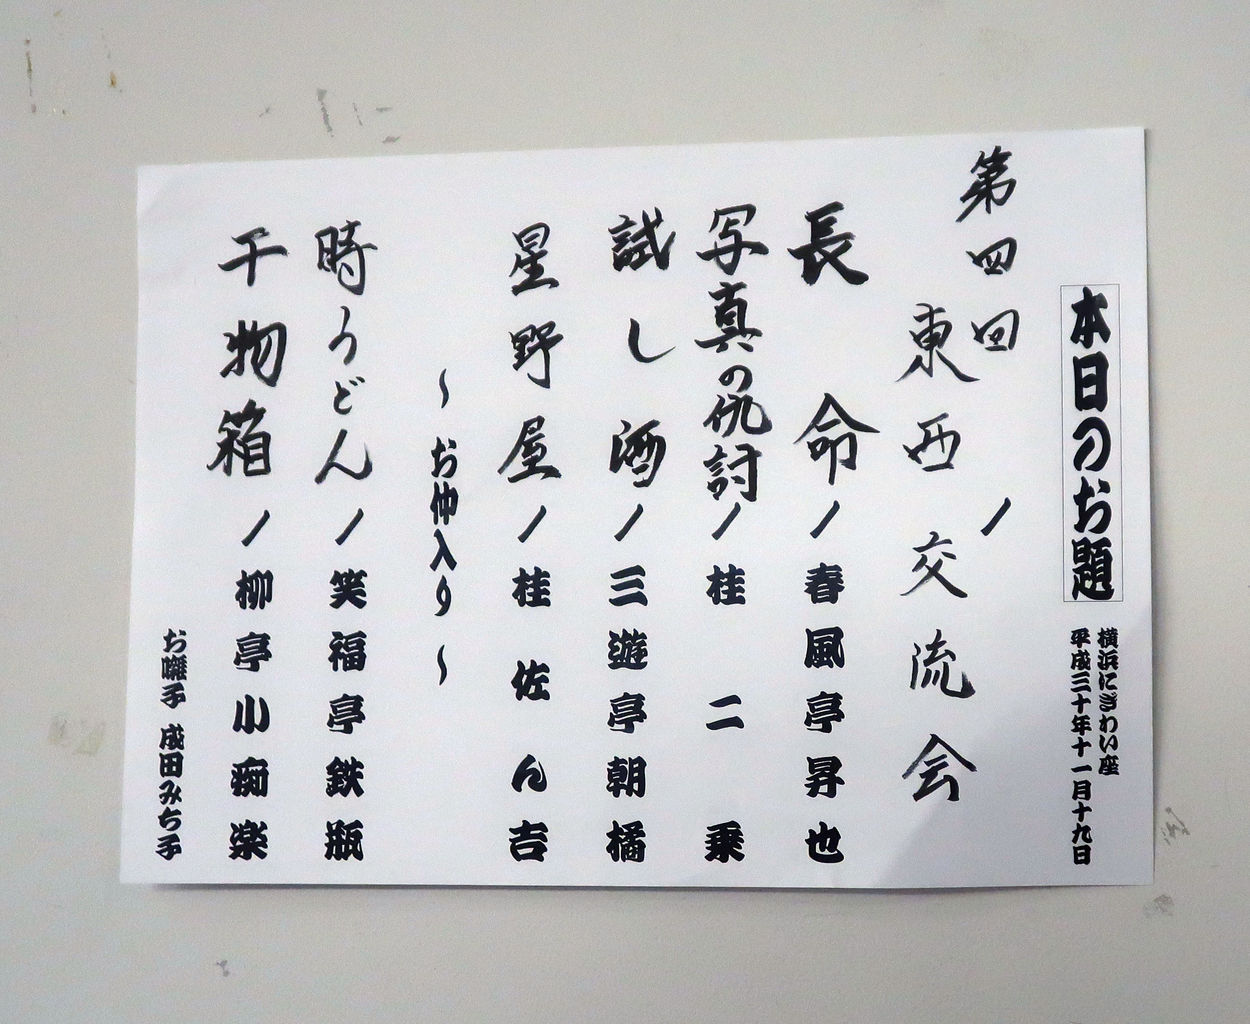 本日のお題
横浜にぎわい座
平成三十年十一月十九日
第四回ノ
東西交流会
長命ノ春風亭昇也
写真の仇討ノ桂二乗
試し酒ノ三遊亭朝橘
星野屋ノ桂佐ん吉
～お仲入り～
時うどんノ笑福亭鉄瓶
干物箱ノ柳亭小痴楽
お囃子 成田みち子